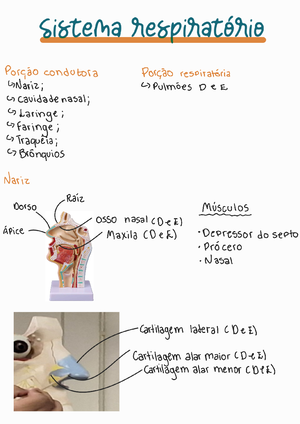 Sistema respiratório
Porção condutora
↳Nariz;
↳Cavidade nasal;
↳Laringe;
↳Faringe;
↳Traqueia;
↳Brônquios
Porção respiratória
↳Pulmões D e E
Nariz
Raiz
Dorso
Ápice
Osso nasal (D e E)
Maxila (D e E)
Músculos
• Depressor do septo
• Prócero
• Nasal
Cartilagem lateral (D e E)
Cartilagem alar maior (D e E)
Cartilagem alar menor (D e E)